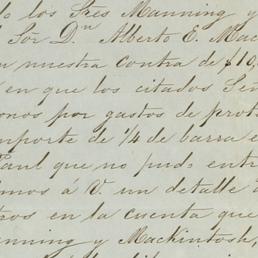 do los Sres Manning y
Sor Dn Alberto E. Mac
nuestra contra de $10,
en que los citados Señ
onos por gastos de prot
mporte de 1/4 de barra e
Paul que no pudo entr
mos á V. un detalle d
tros en la cuenta que
nning y Mackintosh,